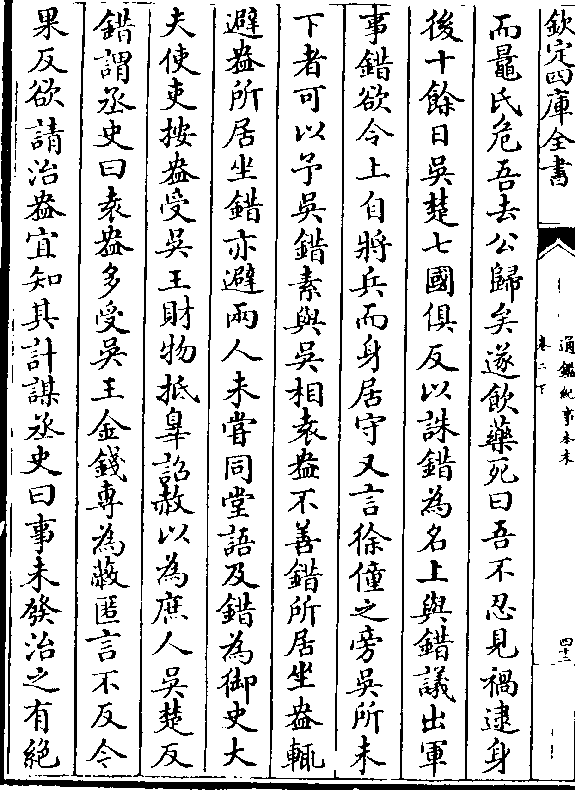 欽定四庫全書
通鑑紀事本末
卷二下
四十二
而鼂氏危吾去公歸矣遂飲藥死曰吾不忍見禍逮身
後十餘日吳楚七國俱反以誅錯為名上與錯議出軍
事錯欲令上自將兵而身居守又言徐僮之旁吳所未
下者可以予吳錯素與吳相袁盎不善錯所居坐盎輒
避盎所居坐錯亦避兩人未嘗同堂語及錯為御史大
夫使吏按盎受吳王財物抵辠詔赦以為庶人吳楚反
錯謂丞史曰袁盎多受吳王金錢專為蔽匿言不反今
果反欲請治盎宜知其計謀丞史曰事未發治之有絕